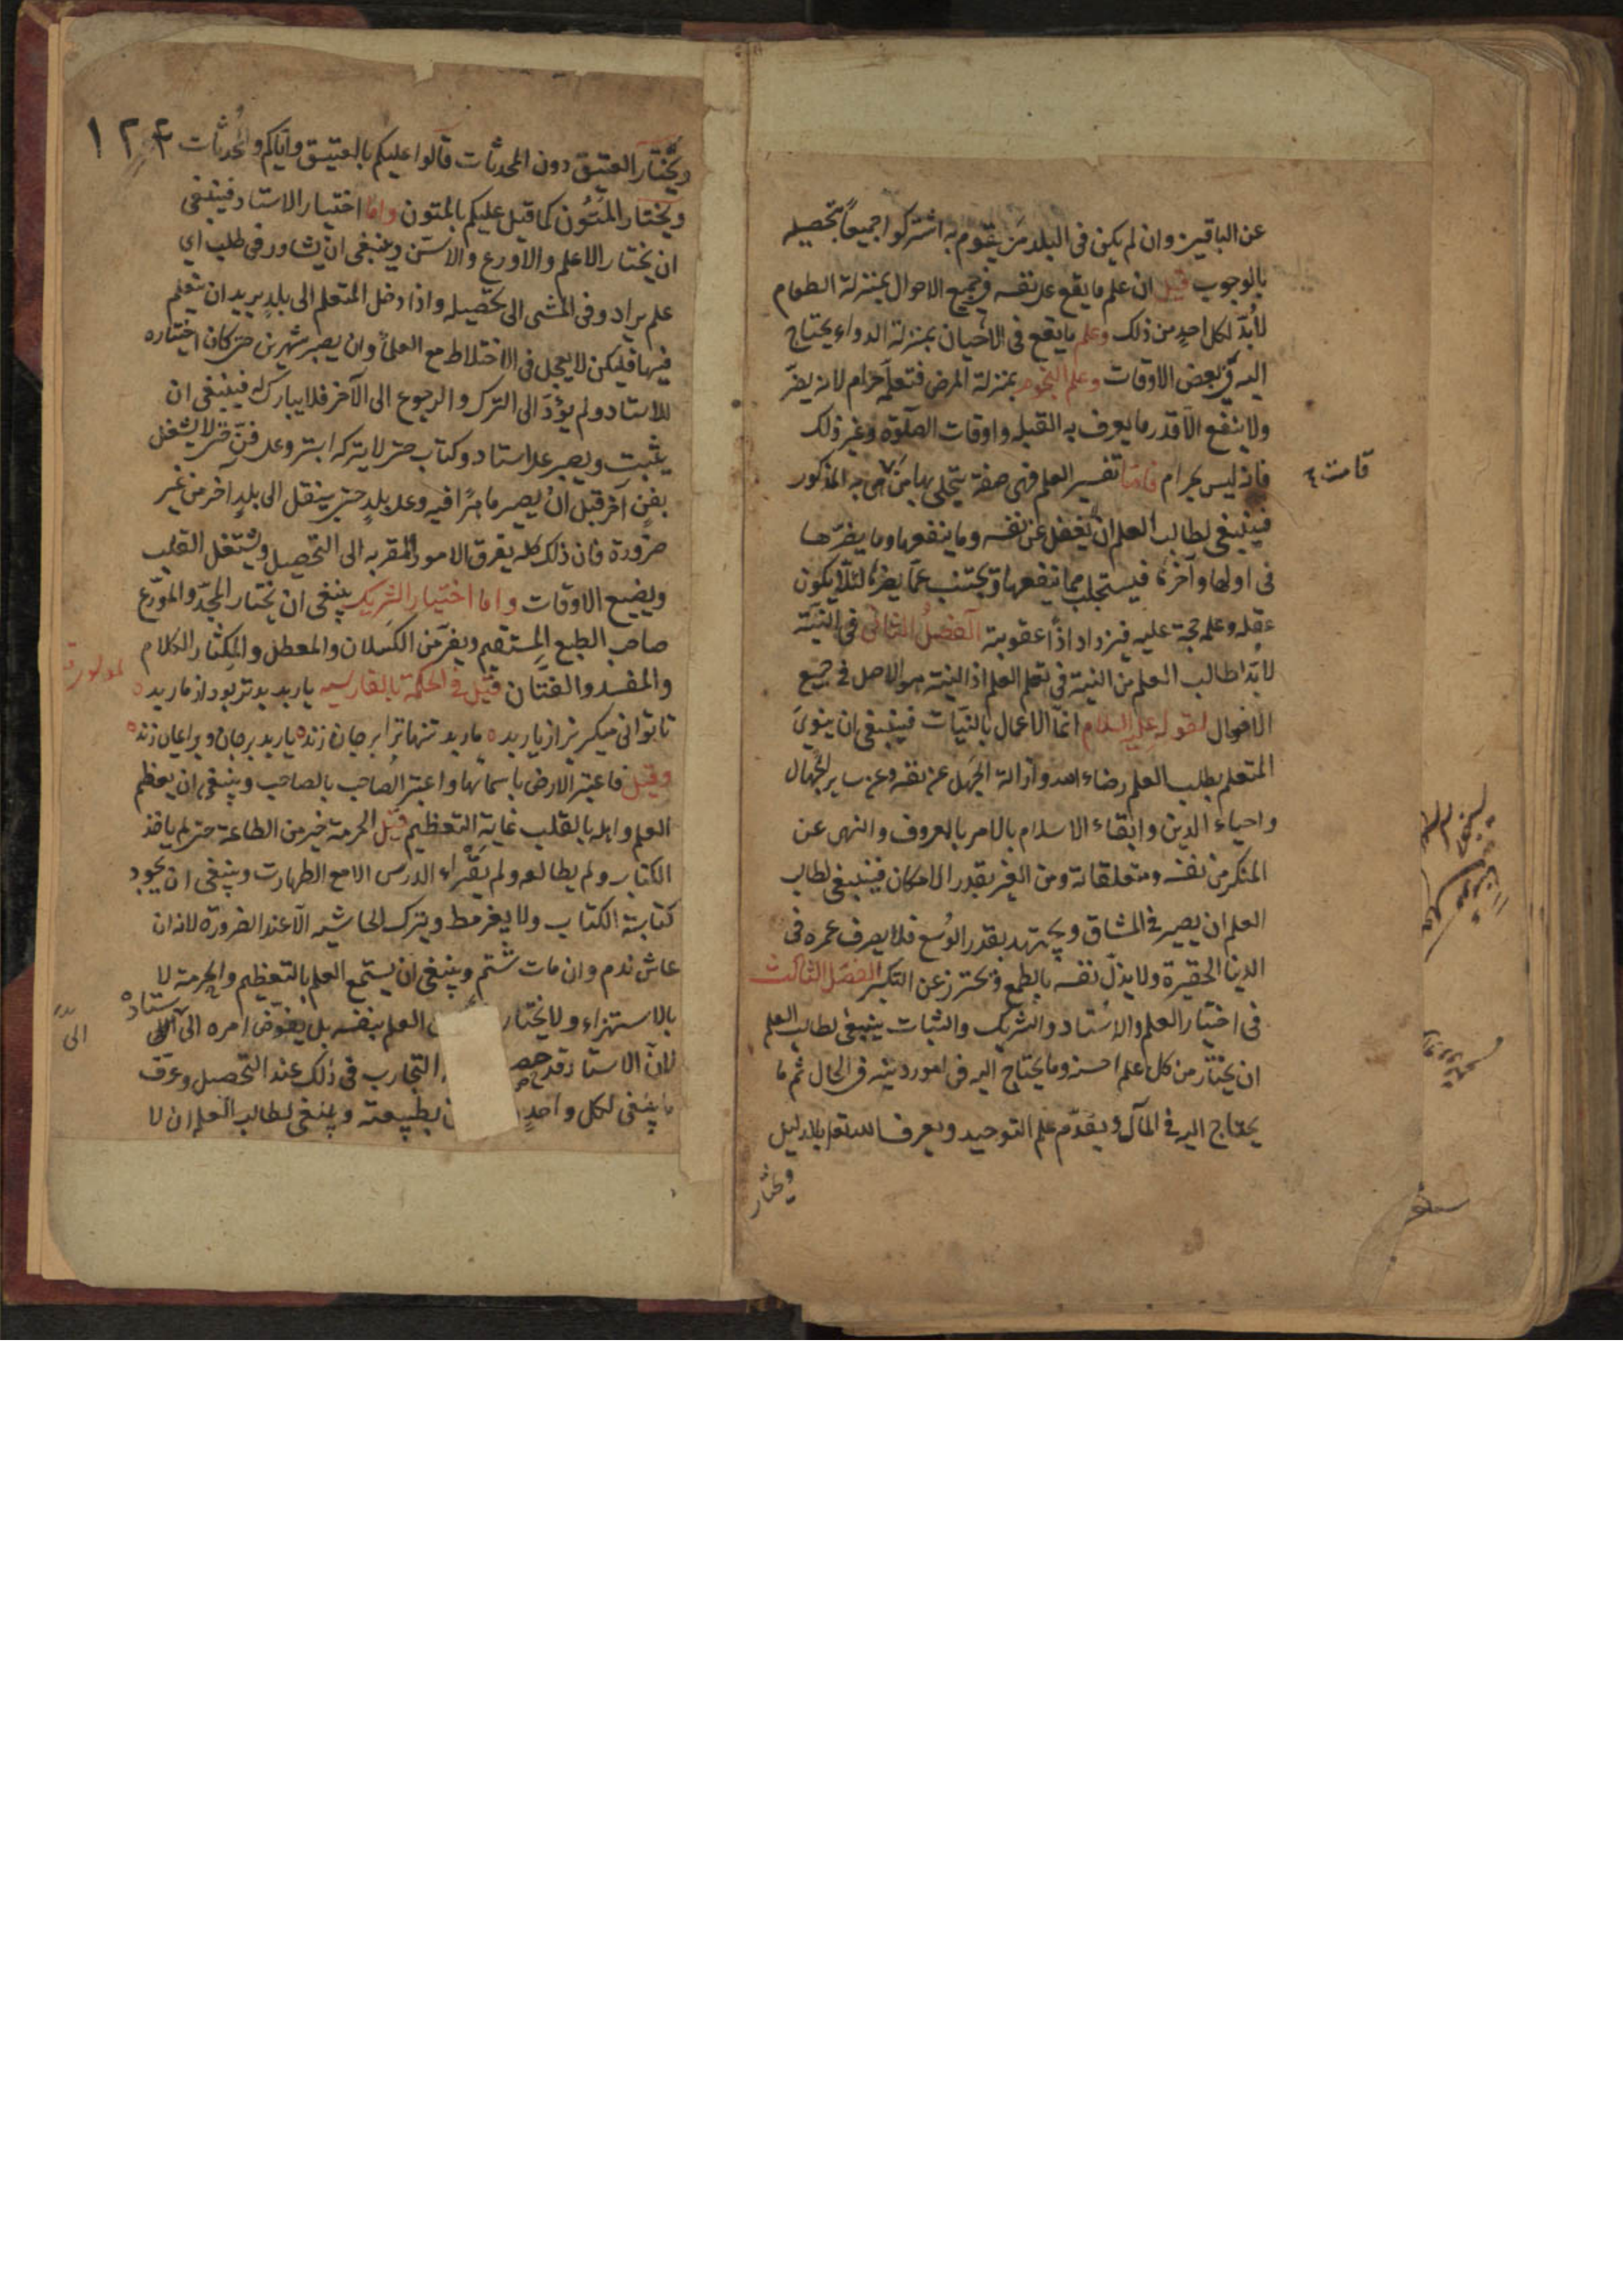 عن الباقين وان لم يكن فى البلد من يقوم به اشتركوا جميعا بتحصيله
بالوجوب قيل ان علم ما يقع على نفسه فى جميع الاحوال بمنزلة الطعام
لا بد لكل احد من ذلك وعلم ما يقع فى الاحيان بمنزلة الدواء يحتاج
اليه فى بعض الاوقات وعلم النجوم بمنزلة المرض فتعلمه حرام لانه يضر
ولا ينفع الا قدر ما يعرف به القبلة واوقات الصلوة وغير ذلك
فانه ليس بحرام فاما تفسير العلم فهى صفة يتجلى بها من هى به المذكور
قامت
فينبغى لطالب العلم ان يغفل عن نفسه وما ينفعها وما يضرها
فى اولها وآخرها فيستجلب مما ينفعها ويجتنب عما يضرها لئلا يكون
عقله وعلمه حجة عليه فيزداد اذا عقوبته الفصل الثانى فى النية
لا بد لطالب العلم من النية فى تعلم العلم اذ النية هو الاصل فى جميع
الاحوال لقوله عليه السلام انما الاعمال بالنيات فينبغى ان ينوى
المتعلم بطلب العلم رضاء الله وازالة الجهل عن نفسه وعن ساير الجهال
واحياء الدين وابقاء الاسلام بالامر بالمعروف والنهى عن
المنكر من نفسه ومتعلقاته ومن الغير بقدر الامكان فينبغى لطالب
العلم ان يصبر فى المشاق ويجتهد بقدر الوسع فلا يصرف عمره فى
الدنيا الحقيرة ولا يذل نفسه بالطمع ويحترز عن التكبر الفصل الثالث
فى اختيار العلم والاستاد والشريك والثبات ينبغى لطالب العلم
ان يختار من كل علم احسنه وما يحتاج اليه فى امور دينه فى الحال ثم ما
يحتاج اليه فى المآل ويقدم علم التوحيد ويعرف الله تعالى بالدليل
ويختار
١٢٤
ويختار العتيق دون المحدثات قالوا عليكم بالعتيق واياكم والمحدثات
ويختار المتون كما قيل عليكم بالمتون واما اختيار الاستاد فينبغى
ان يختار الاعلم والاورع والاسن وينبغى ان يشاور فى طلب اى
علم يراد وفى المشى الى تحصيله واذا دخل المتعلم الى بلد يريد ان يتعلم
فيها فليكن لا يعجل فى الاختلاط مع العلماء وان يصبر شهرين حتى كان اختياره
للاستاد ولم يؤد الى الترك والرجوع الى الآخر فلا يبارك فينبغى ان
يثبت ويصبر على استاد وكتاب حتى لا يتركه ابتر وعلى فن حتى لا يشتغل
بفن آخر قبل ان يصير ماهرا فيه وعلى بلد حتى ينقل الى بلد آخر من غير
ضرورة فان ذلك كله يفرق الامور المقربه الى التحصيل ويشغل القلب
ويضيع الاوقات واما اختيار الشريك ينبغى ان يختار المجد والمورع
صاحب الطبع المستقيم ويفر من الكسلان والمعطل والمكثار الكلام
والمفسد والفتان قيل فى الحكمة بالفارسيه يار بد بدتر بود از مار بد
تا توانى ميكريز از يار بد مار بد تنها ترا بر جان زند يار بد بر جان و بر ايمان زند
وقيل فاعتبر الارض باسمائها واعتبر الصاحب بالصاحب وينبغى ان يعظم
العلم واهله بالقلب غاية التعظيم قيل الحرمة خير من الطاعة حتى لم ياخذ
الكتاب ولم يطالعه ولم يقراء الدرس الا مع الطهارت وينبغى ان يجود
كتابة الكتاب ولا يقرمط ويترك الحاشيه الا عند الضرورة لانه ان
عاش ندم وان مات شتم وينبغى ان يستمع العلم بالتعظيم والحرمة لا
بالاستهزاء ولا يختار العلم بنفسه بل يفوض امره الى الاستاد
لان الاستاد قد حصل التجارب فى ذلك عند التحصيل وعرف
ما ينبغى لكل واحد بطبيعته وينبغى لطالب العلم ان لا